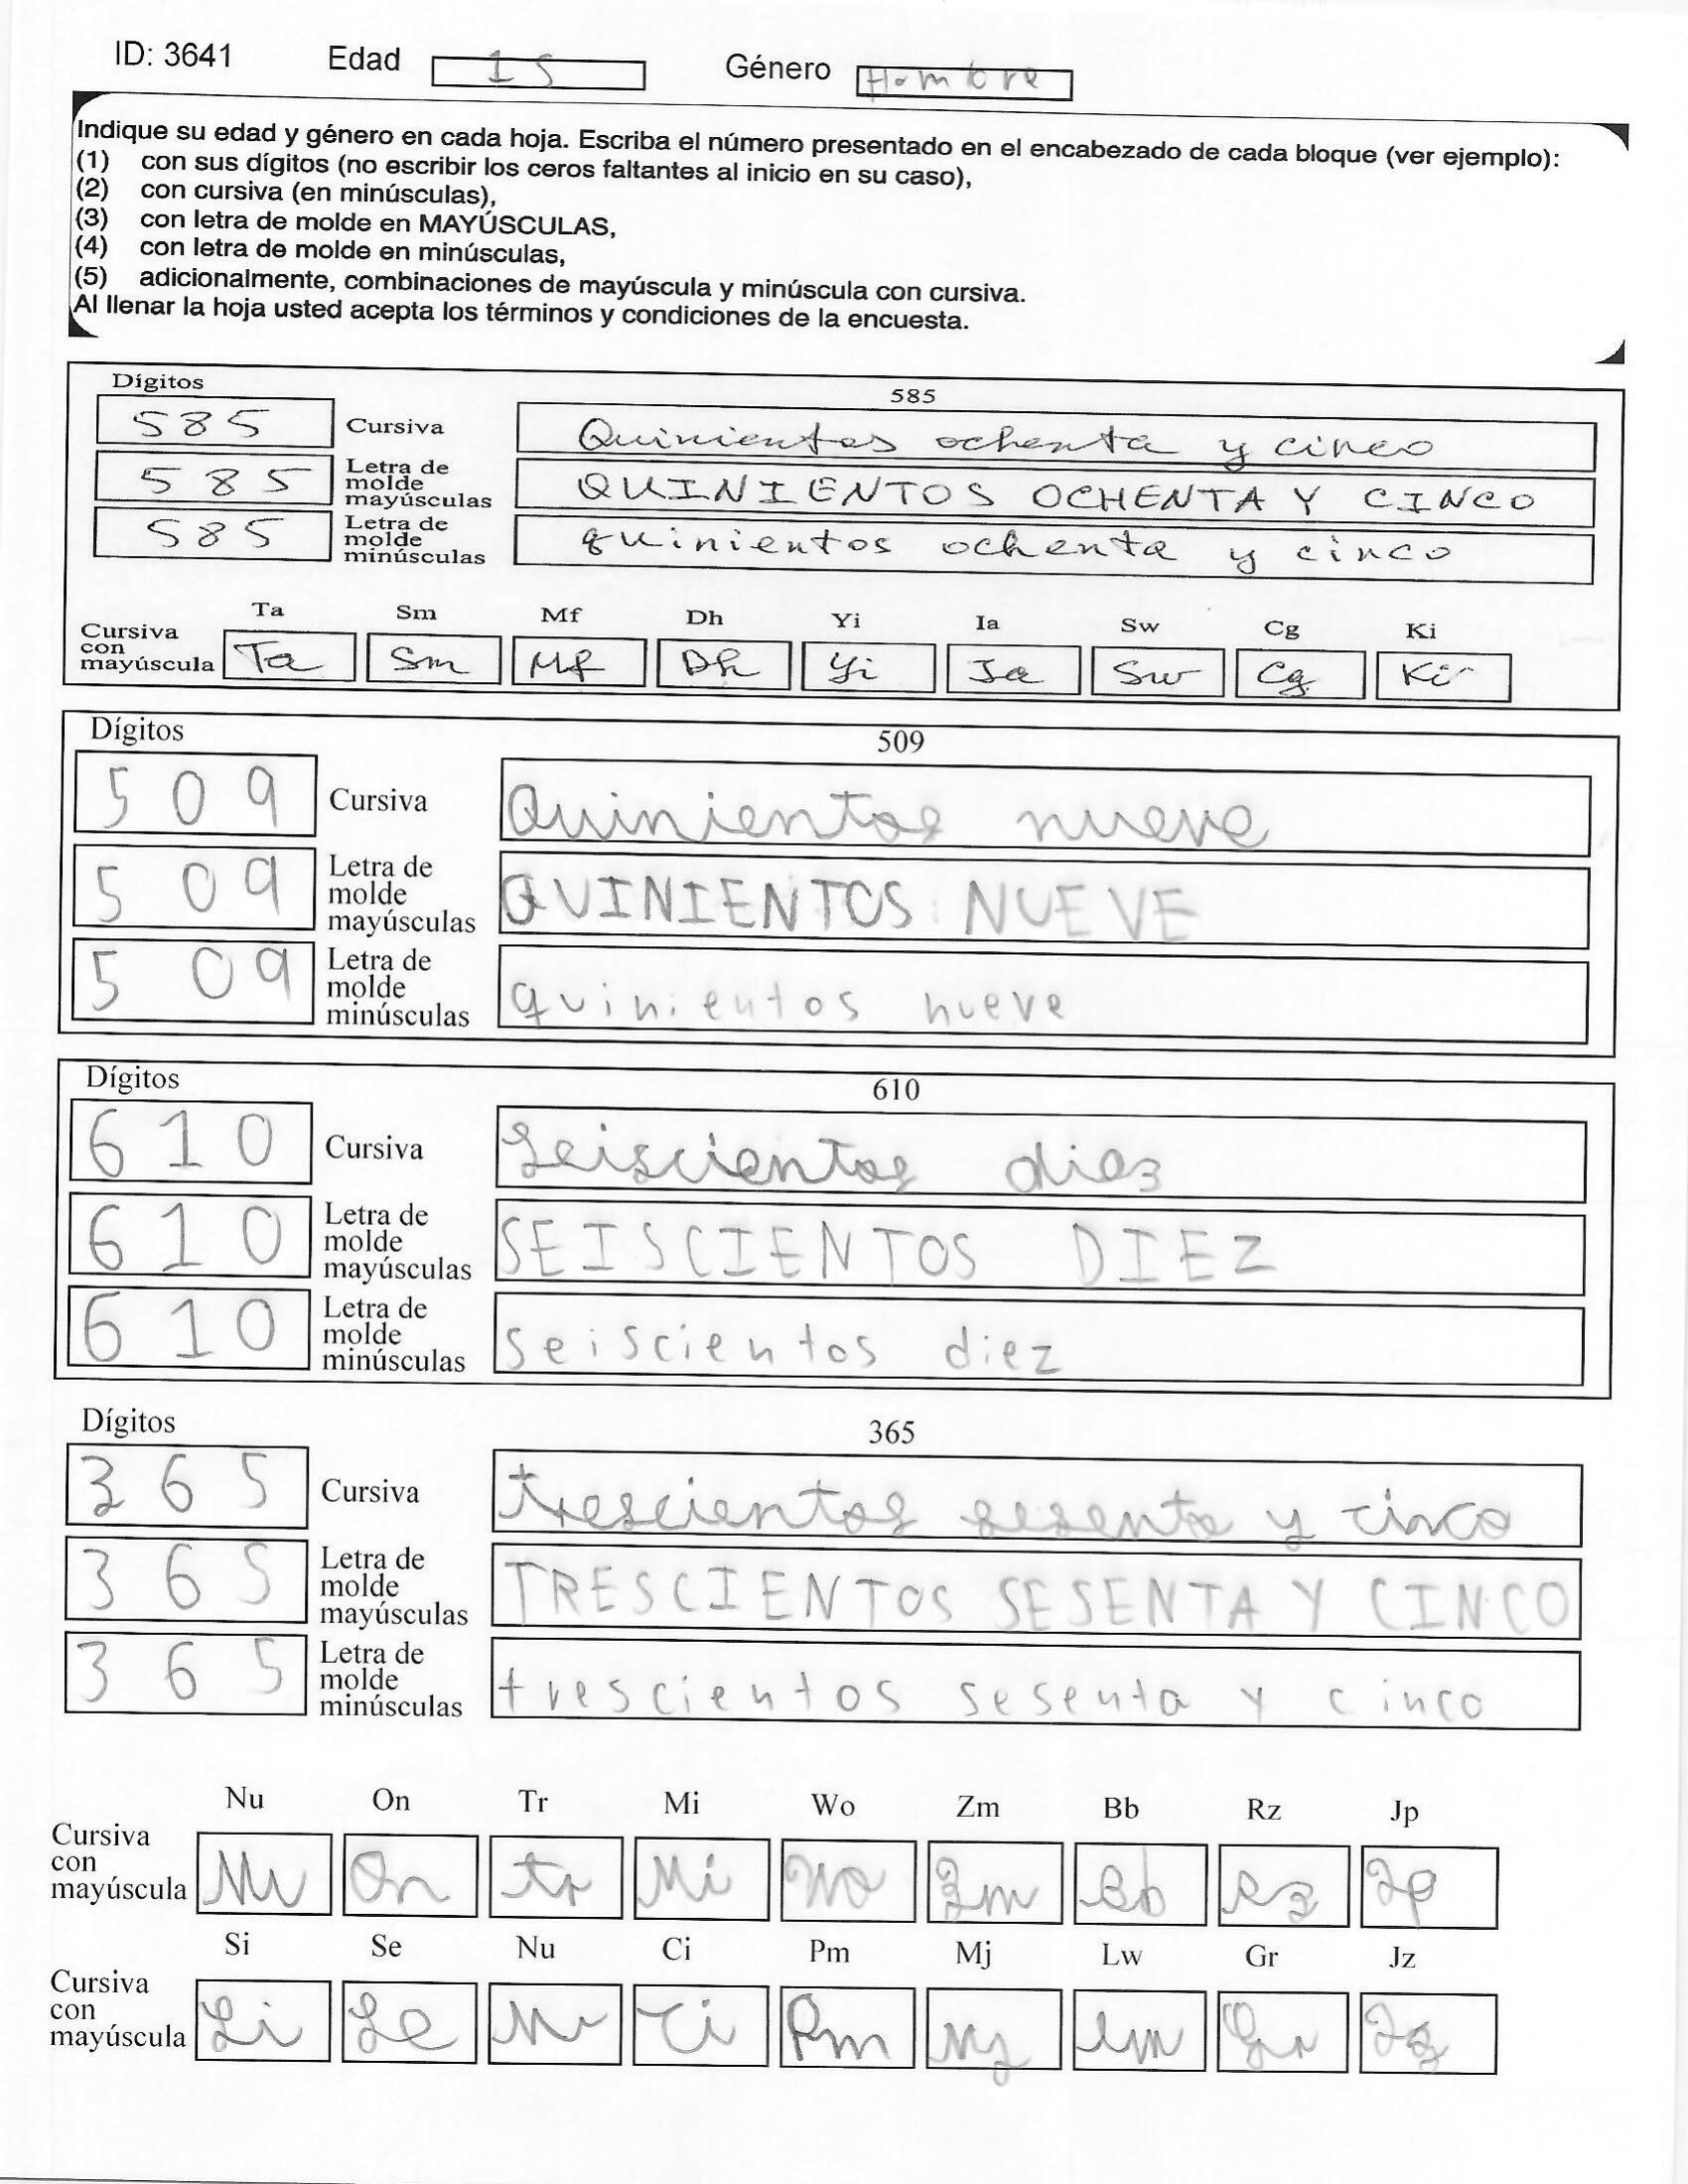 ID: 3641 Edad 15 Género Hombre
Indique su edad y género en cada hoja. Escriba el número presentado en el encabezado de cada bloque (ver ejemplo):
(1) con sus dígitos (no escribir los ceros faltantes al inicio en su caso),
(2) con cursiva (en minúsculas),
(3) con letra de molde en MAYÚSCULAS,
(4) con letra de molde en minúsculas,
(5) adicionalmente, combinaciones de mayúscula y minúscula con cursiva.
Al llenar la hoja usted acepta los términos y condiciones de la encuesta.
Dígitos 585
585 Cursiva Quinientos ochenta y cinco
585 Letra de molde mayúsculas QUINIENTOS OCHENTA Y CINCO
585 Letra de molde minúsculas quinientos ochenta y cinco
Ta Sm Mf Dh Yi Ia Sw Cg Ki
Cursiva con mayúscula Ta Sm Mf Dh Yi Ia Sw Cg Ki
Dígitos 509
509 Cursiva Quinientos nueve
509 Letra de molde mayúsculas QUINIENTOS NUEVE
509 Letra de molde minúsculas quinientos nueve
Dígitos 610
610 Cursiva Seiscientos diez
610 Letra de molde mayúsculas SEISCIENTOS DIEZ
610 Letra de molde minúsculas seiscientos diez
Dígitos 365
365 Cursiva trescientos sesenta y cinco
365 Letra de molde mayúsculas TRESCIENTOS SESENTA Y CINCO
365 Letra de molde minúsculas trescientos sesenta y cinco
Nu On Tr Mi Wo Zm Bb Rz Jp
Cursiva con mayúscula Nu On tr Mi Wo Zm Bb Rz Jp
Si Se Nu Ci Pm Mj Lw Gr Jz
Cursiva con mayúscula Si Se Nu Ci Pm Mj Lw Gr Jz